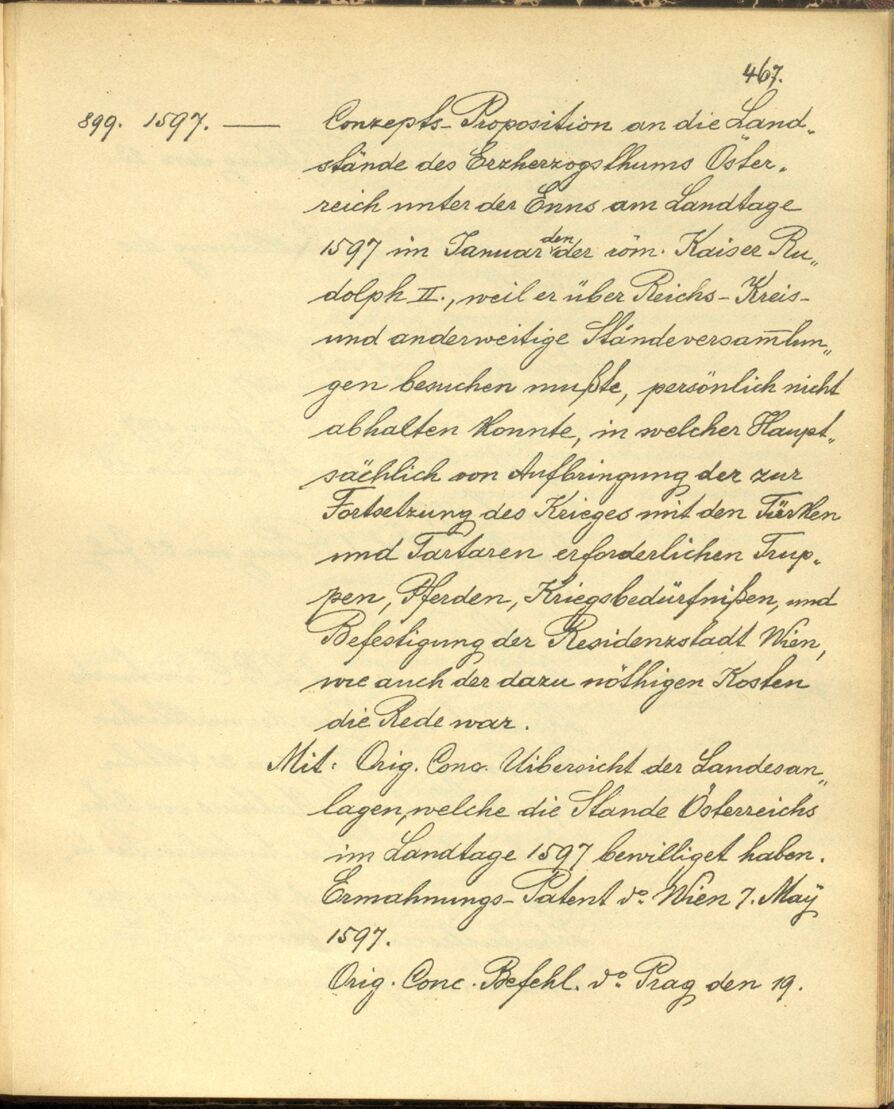 467.
899. 1597. — Concepts-Proposition an die Land„
stände des Erzherzogsthums Öster„
reich unter der Enns am Landtage
1597 im Januar den der röm. Kaiser Ru„
dolph II., weil er über Reichs-Kreis-
und anderweitige Ständeversam̅lun„
gen besuchen mußte, persönlich nicht
abhalten konnte, in welcher Haupt„
sächlich von Aufbringung der zur
Fortsetzung des Krieges mit den Türken
und Tartaren erforderlichen Trup„
pen, Pferden, Kriegsbedürfnißen, und
Befestigung der Residenzstadt Wien,
wie auch der dazu nöthigen Kosten
die Rede war.
Mit: Orig. Conc. Uibersicht der Landesan„
lagen, welche die Stände Österreichs
im Landtage 1597 bewilliget haben.
Ermahnungs-Patent do Wien 7. Maÿ
1597.
Orig. Conc. Befehl. do Prag den 19.